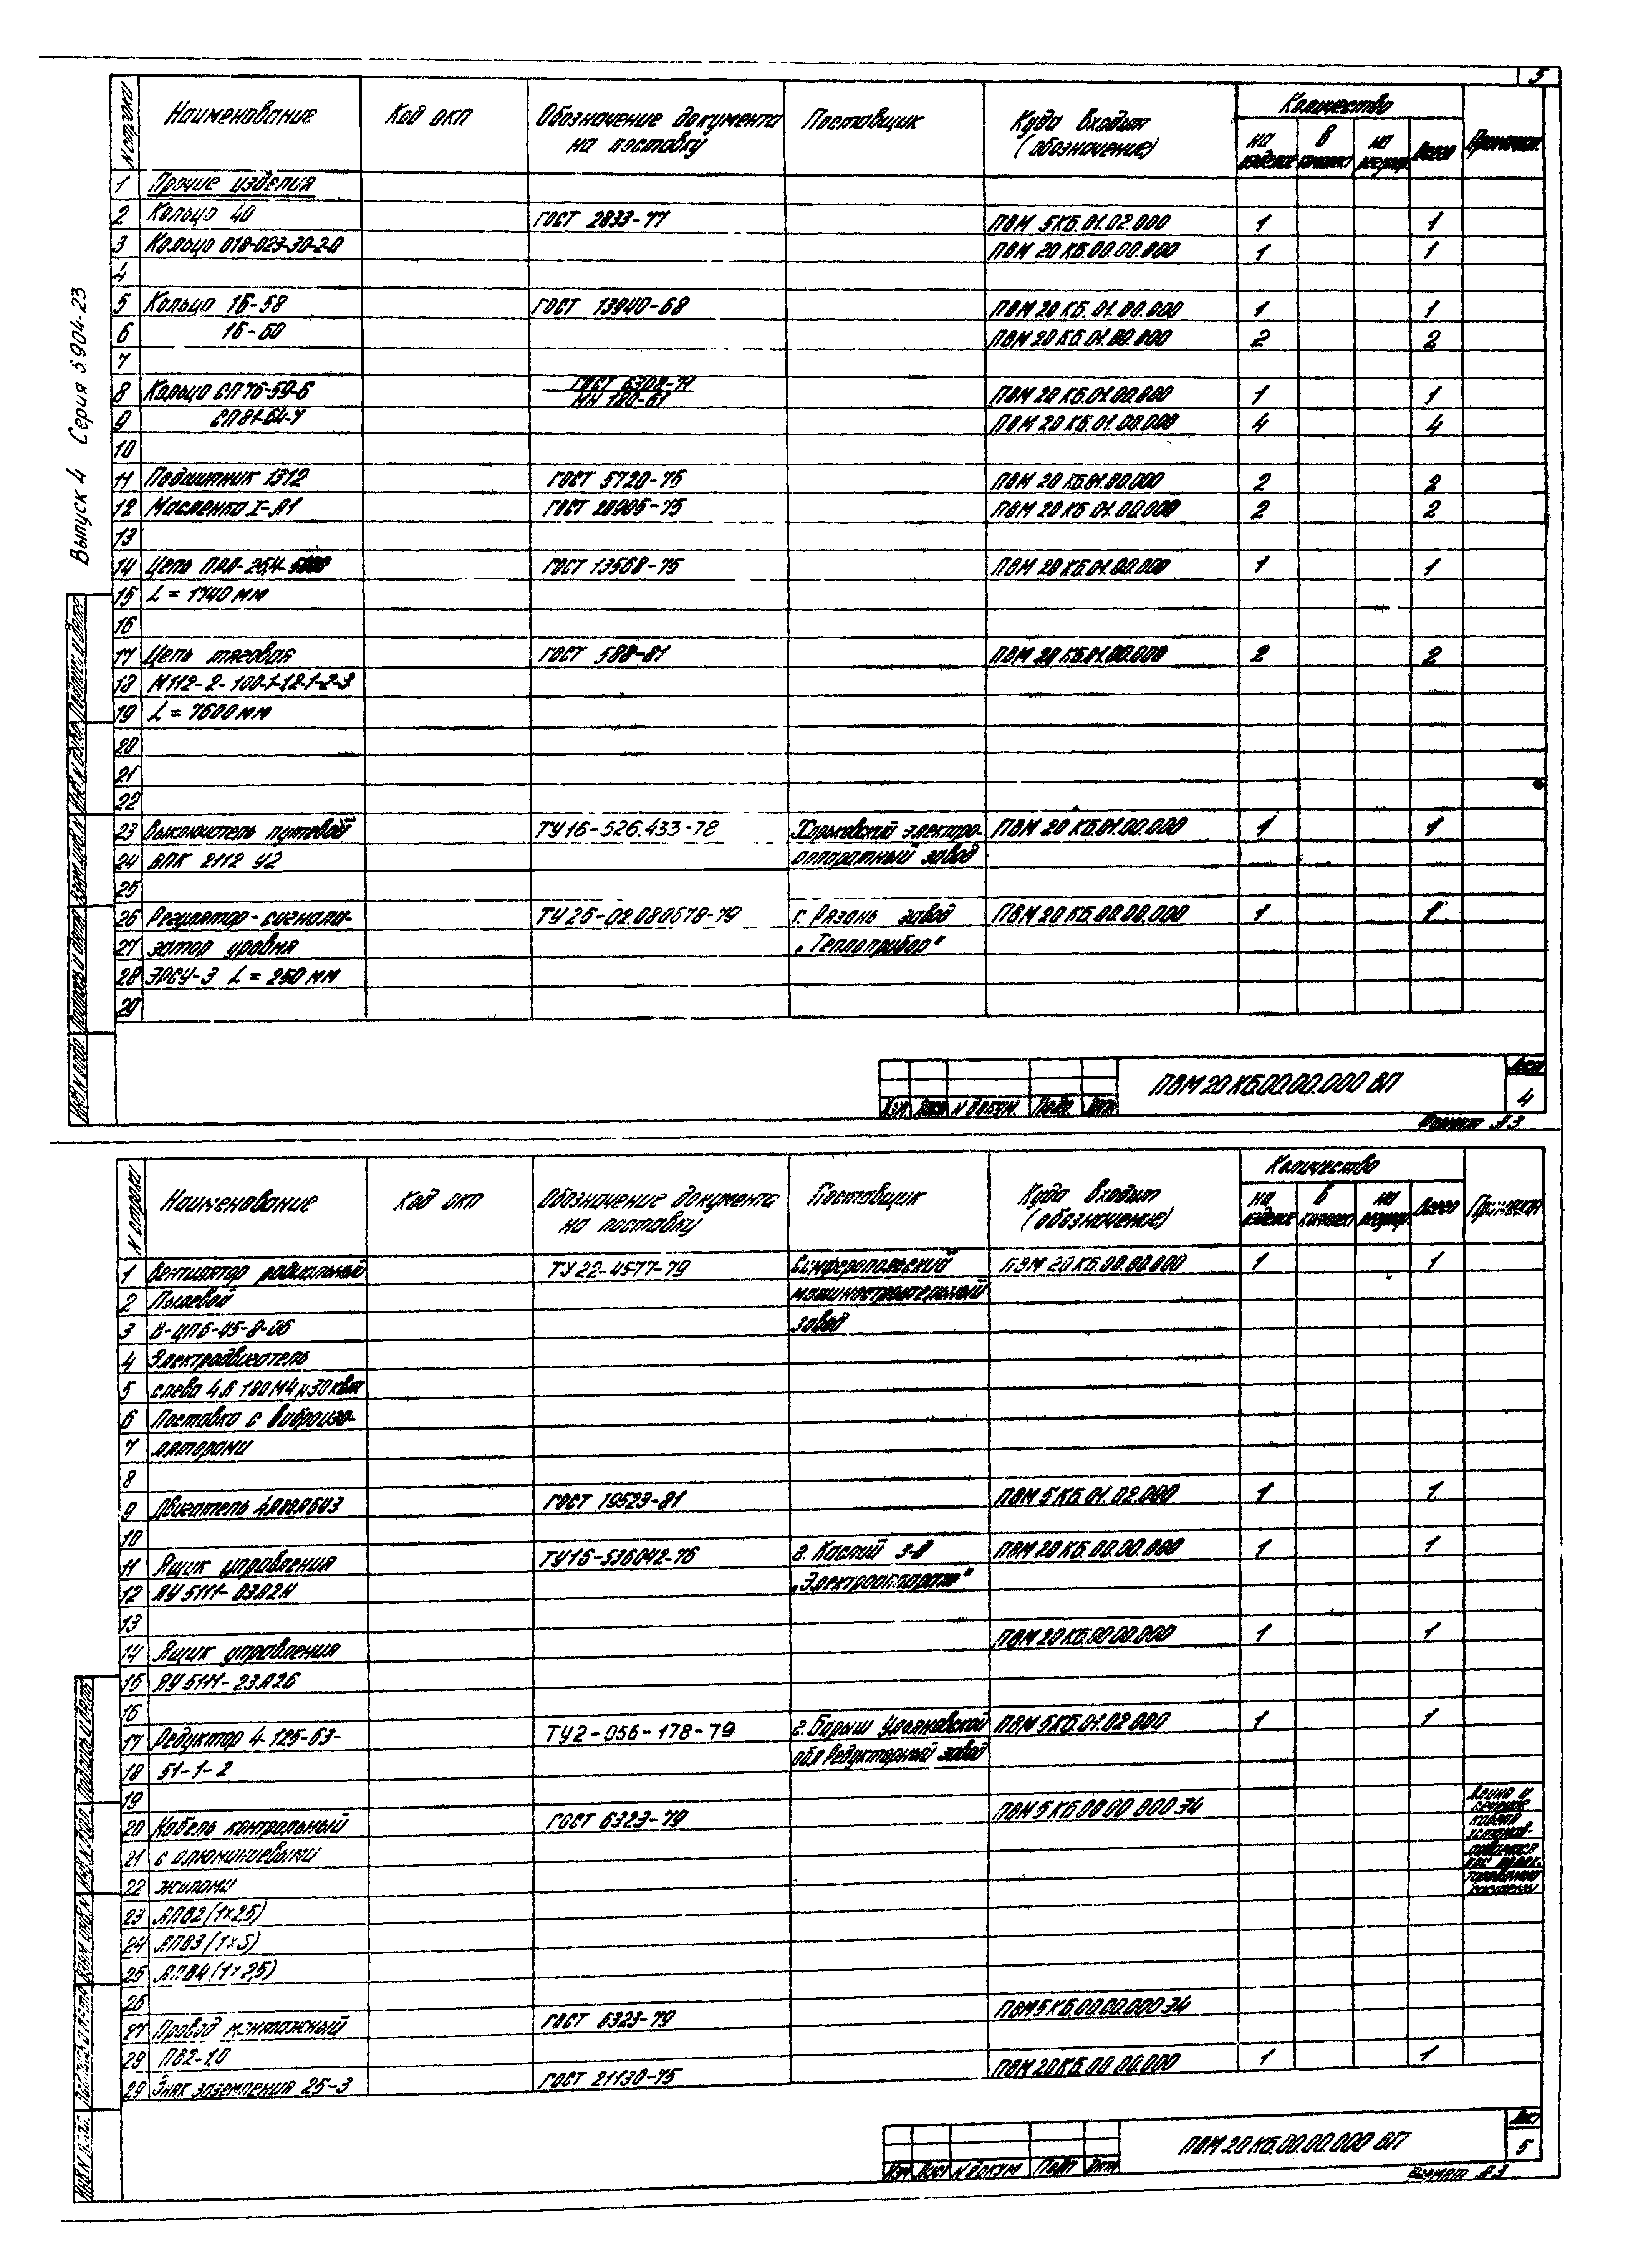 5
Выпуск 4 Серия 5.904-23
N строки Наименование Код ОКП Обозначение документа на поставку Поставщик Куда входит (обозначение) Количество на изделие в комплект на регулир. Всего Примечан.
1 Прочие изделия
2 Кольцо 40 ГОСТ 2833-77 ПВМ 5КБ.01.02.000 1 1
3 Кольцо 018-023-30-2-0 ПВМ 20 КБ.00.00.000 1 1
4
5 Кольцо 1Б-58 ГОСТ 13940-68 ПВМ 20 КБ.01.00.000 1 1
6 1Б-60 ПВМ 20 КБ.01.00.000 2 2
7
8 Кольцо СП 76-59-6 ГОСТ 6308-71 МН 180-61 ПВМ 20 КБ.01.00.000 1 1
9 СП81-64-7 ПВМ 20 КБ.01.00.000 4 4
10
11 Подшипник 1312 ГОСТ 5720-75 ПВМ 20 КБ.01.00.000 2 2
12 Масленка I-А1 ГОСТ 20905-75 ПВМ 20 КБ.01.00.000 2 2
13
14 Цепь ПРЛ-25,4- ГОСТ 13568-75 ПВМ 20 КБ.01.00.000 1 1
15 L = 1740 мм
16
17 Цепь тяговая ГОСТ 588-81 ПВМ 20 КБ.01.00.000 2 2
18 М112-2-100-1-12-1-2-3
19 L = 7600 мм
20
21
22
23 Выключатель путевой ТУ16-526.433-78 Харьковский электро- ПВМ 20 КБ.01.00.000 1 1
24 ВПК 2112 У2 аппаратный завод
25
26 Регулятор-сигнали- ТУ 25-02.080678-79 г. Рязань завод ПВМ 20 КБ.00.00.000 1 1
27 затор уровня „Теплоприбор"
28 ЭРСУ-3 L = 250 мм
29
Инв. N подл. Подпись и дата Взам. инв. N Инв. N дубл. Подпись и дата
Изм Лист N докум. Подп. Дата ПВМ 20 КБ.00.00.000 ВП Лист 4
Формат А3
N строки Наименование Код ОКП Обозначение документа на поставку Поставщик Куда входит (обозначение) Количество на изделие в комплект на регулир. Всего Примечан
1 Вентилятор радиальный ТУ 22-4577-79 Симферопольский ПВМ 20 КБ.00.00.000 1 1
2 Пылевой машиностроительный
3 В-ЦП6-45-8-06 завод
4 Электродвигатель
5 слева 4А 180М4 x 30 квт
6 Поставка с виброизо-
7 ляторами
8
9 Двигатель ГОСТ 19523-81 ПВМ 5 КБ.01.02.000 1 1
10
11 Ящик управления ТУ16-536042-76 г. Каспий з-д ПВМ 20 КБ.00.00.000 1 1
12 ЯУ 5111-03А2Н „Электроаппарат"
13
14 Ящик управления ПВМ 20 КБ.00.00.000 1 1
15 ЯУ 5111-23А2Б
16
17 Редуктор 4-125-63- ТУ2-056-178-79 г. Барыш Ульяновской ПВМ 5 КБ.01.02.000 1 1
18 51-1-2 обл Редукторный завод
19
20 Кабель контрольный ГОСТ 6323-79 ПВМ 5 КБ.00.00.000 Э4 Длина и сечение кабеля устанав-
21 с алюминиевыми
22 жилами
23 АПВ2 (1×2,5)
24 АПВ3 (1×5)
25 АПВ4 (1×2,5)
26
27 Провод монтажный ГОСТ 6323-79 ПВМ 5 КБ.00.00.000 Э4
28 ПВ2-1,0
29 Знак заземления 25-3 ГОСТ 21130-75 ПВМ 20 КБ.00.00.000 1 1
Инв. N подл. Подпись и дата Взам. инв. N Инв. N дубл. Подпись и дата
Изм Лист N докум Подп Дата ПВМ 20 КБ.00.00.000 ВП Лист 5
Формат А3